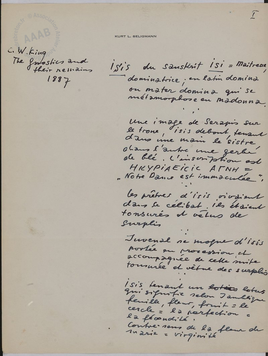 I
KURT L. SELIGMANN
C. W. King
The Gnostics and
their remains
1887
Isis du sanskrit isi = Maitresse,
dominatrice, en latin domina
ou mater domina qui se
métamorphose en madonna.
Une image de Serapis sur
le trone, isis debout, tenant
dans une main le sistre
dans l'autre une gerbe
de blé. L'inscription est
HKYPIAEICIC AΓNH =
"Notre Dame est immaculée".
Les prêtres d'isis vivaient
dans le célibat, ils étaient
tonsurés et vêtus de
surplis
Juvenal se moque d'isis
portée en procession et
accompagnée de cette suite
tonsurée et vêtue des surplis
Isis tenant un lotus
qui signifie selon Jamblique
feuille, fleur, fruit = le
cercle = la perfection =
la fécondité.
Contre sens de la fleur de
marie = virginité